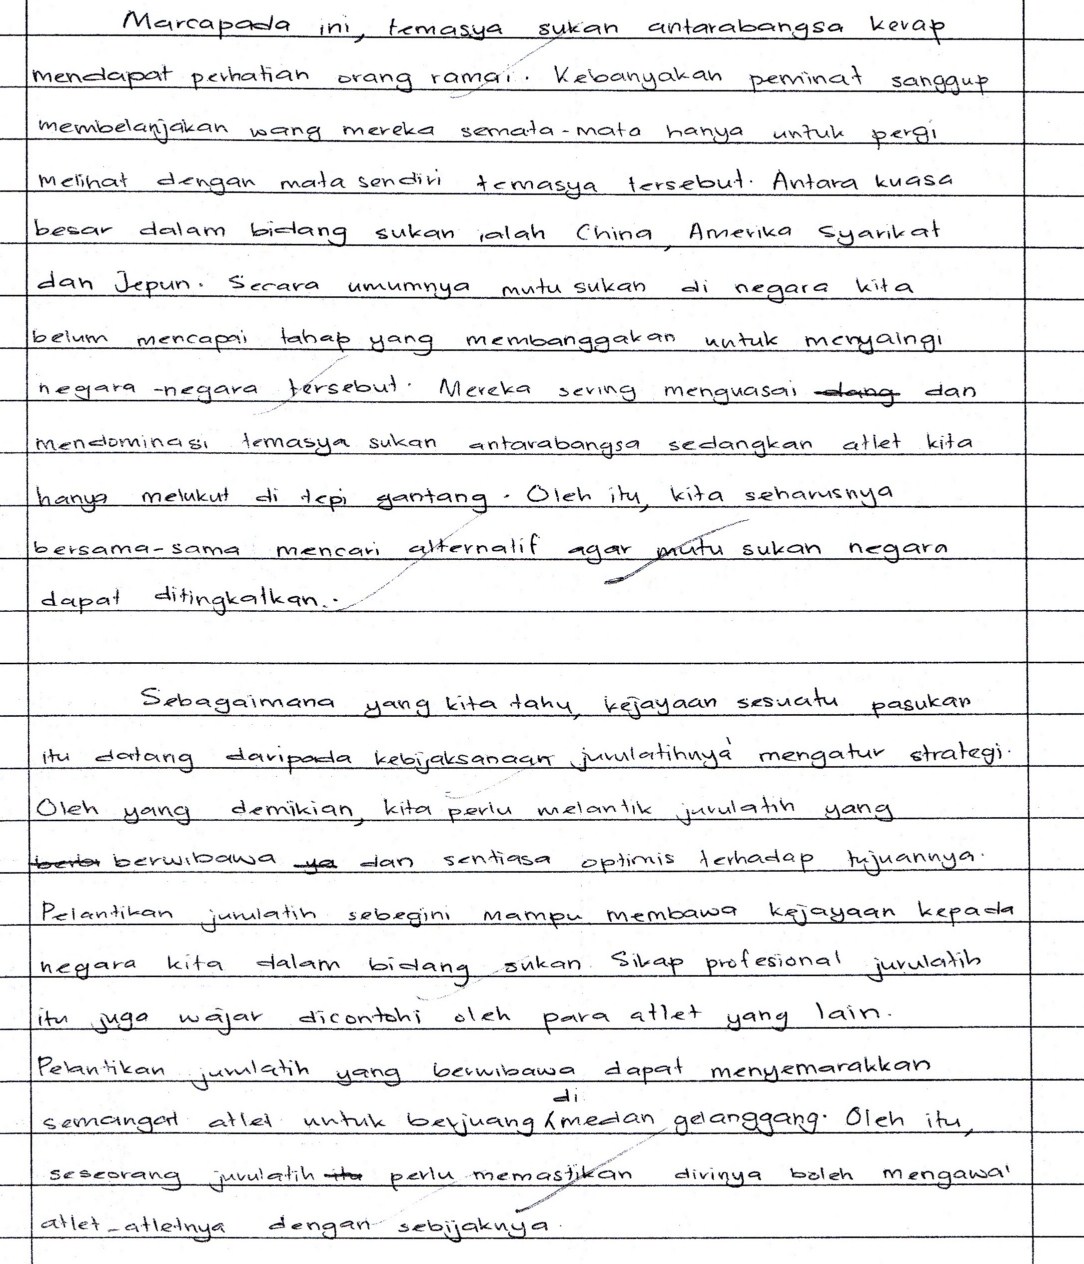 Marcapada ini, temasya sukan antarabangsa kerap
mendapat perhatian orang ramai. Kebanyakan peminat sanggup
membelanjakan wang mereka semata-mata hanya untuk pergi
melihat dengan mata sendiri temasya tersebut. Antara kuasa
besar dalam bidang sukan ialah China, Amerika Syarikat
dan Jepun. Secara umumnya mutu sukan di negara kita
belum mencapai tahap yang membanggakan untuk menyaingi
negara-negara tersebut. Mereka sering menguasai dang dan
mendominasi temasya sukan antarabangsa sedangkan atlet kita
hanya melukut di tepi gantang. Oleh itu, kita seharusnya
bersama-sama mencari alternatif agar mutu sukan negara
dapat ditingkatkan..
Sebagaimana yang kita tahu, kejayaan sesuatu pasukan
itu datang daripada kebijaksanaan jurulatihnya mengatur strategi.
Oleh yang demikian, kita perlu melantik jurulatih yang
berwibawa ya dan sentiasa optimis terhadap tujuannya.
Pelantikan jurulatih sebegini mampu membawa kejayaan kepada
negara kita dalam bidang sukan. Sikap profesional jurulatih
itu juga wajar dicontohi oleh para atlet yang lain.
Pelantikan jurulatih yang berwibawa dapat menyemarakkan
semangat atlet untuk berjuang di medan gelanggang. Oleh itu,
seseorang jurulatih itu perlu memastikan dirinya boleh mengawal
atlet-atletnya dengan sebijaknya.